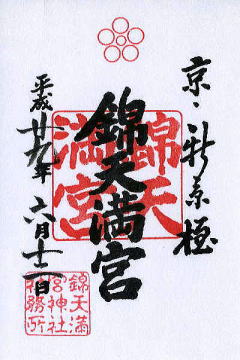 京・新京極
錦天満宮
錦天
満宮
平成廿九年 六月十二日
錦天満
宮神社
務所